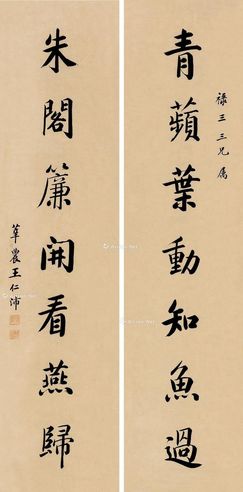 禄王三兄属
青蘋葉動知魚過
朱閣簾開看燕歸
農王仁沛